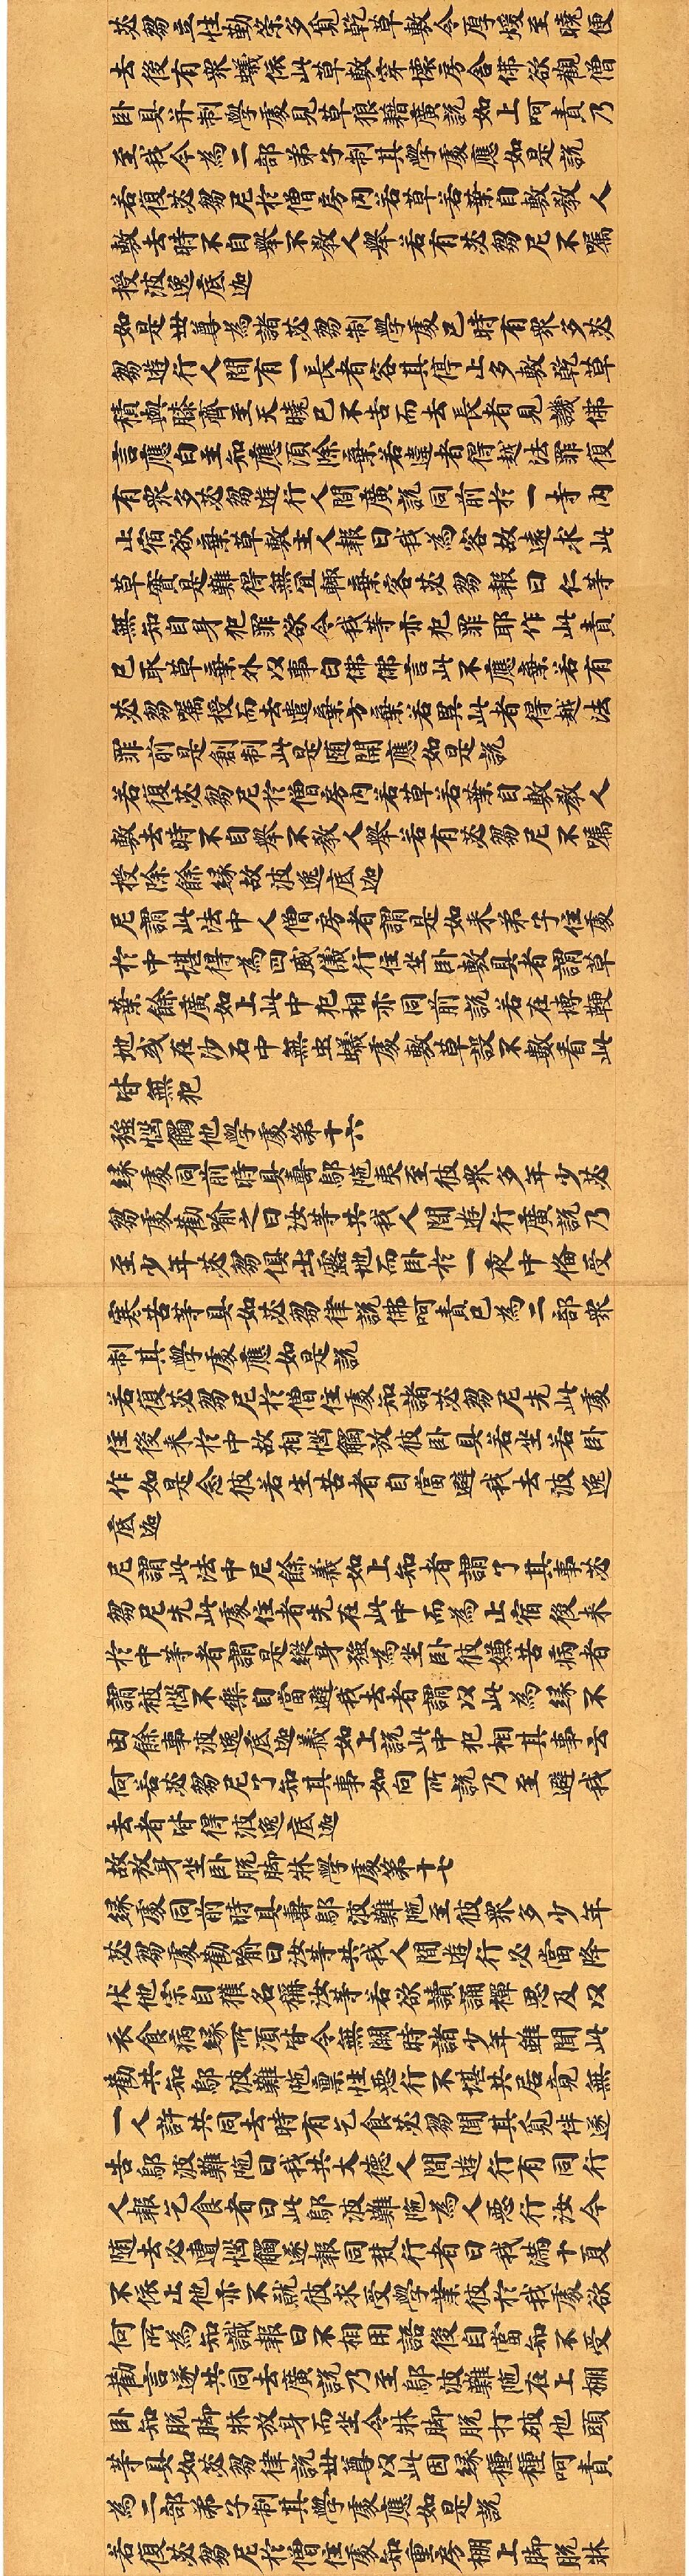 苾芻立性勤策多覓乾草敷令厚煖至曉便
去後有衆蟻依此草敷穿壞房舍佛欲觀僧
卧具并制學處見草狼籍廣說如上呵責乃
至我今為二部弟子制其學處應如是說
若復苾芻尼於僧房内若草若葉自敷教人
敷去時不自舉不教人舉若有苾芻尼不囑
授波逸底迦
如是世尊為諸苾芻制學處已時有衆多苾
芻遊行人間有一長者容其停止多敷乾草
積與膝齊至天曉已不告而去長者見譏佛
言應白主知應須除棄若違者得越法罪復
有衆多苾芻遊行人間廣說同前於一寺内
止宿欲棄草敷主人報曰我為客故遠求此
草實是難得無宜輙棄客苾芻報曰仁等
無知自身犯罪欲令我等亦犯罪耶作此責
已取草棄外以事白佛佛言此不應棄若有
苾芻囑授而去遣棄方棄若異此者得越法
罪前是創制此是隨開應如是說
若復苾芻尼於僧房内若草若葉自敷教人
敷去時不自舉不教人舉若有苾芻尼不囑
授除餘緣故波逸底迦
尼謂此法中人僧房者謂是如來弟子住處
於中堪得為四威儀行住坐卧敷具者謂草
葉餘廣如上此中犯相亦同前說若在塼鞕
地或在沙石中無虫蟻處敷草設不數看此
皆無犯
強惱觸他學處第十六
緣處同前時具壽鄔陁夷至彼衆多年少苾
芻處勸喻之曰汝等共我人間遊行廣說乃
至少年苾芻俱出露地而卧於一夜中備受
寒苦等具如苾芻律說佛呵責已為二部衆
制其學處應如是說
若復苾芻尼於僧住處知諸苾芻尼先此處
住後來於中故相惱觸放彼卧具若坐若卧
作如是念彼若生苦者自當避我去波逸
底迦
尼謂此法中尼餘義如上知者謂了其事苾
芻尼先此處住者先在此中而為止宿後來
於中等者謂是縱身強為坐卧彼嫌苦病者
謂被惱不樂自當避我去者謂以此為緣不
由餘事波逸底迦義如上說此中犯相其事云
何若苾芻尼了知其事如向所說乃至避我
去者皆得波逸底迦
故放身坐卧脫脚牀學處第十七
緣處同前時具壽鄔波難陁至彼衆多少年
苾芻處勸喻曰汝等共我人間遊行必當降
伏他宗自獲名稱汝等若欲讀誦禪思及以
衣食病緣所須皆令無闕時諸少年雖聞此
勸共知鄔波難陁禀性惡行不堪共居竟無
一人許共同去時有乞食苾芻聞其覓伴遂
告鄔波難陁曰我共大德人間遊行有同行
人報乞食者曰此鄔波難陁為人惡行汝今
随去必遭惱觸遂報同梵行者曰我滿十夏
不依止他亦不就彼求受學業彼於我處欲
何所為知識報曰不相用語後自當知不受
勸言遂共同去廣說乃至鄔波難陁在上棚
卧知脫脚牀放身而坐令牀脚脫打破他頭
等具如苾芻律說世尊以此因緣種種呵責
為二部弟子制其學處應如是說
若復苾芻尼於僧住處知重房棚上脚脫牀